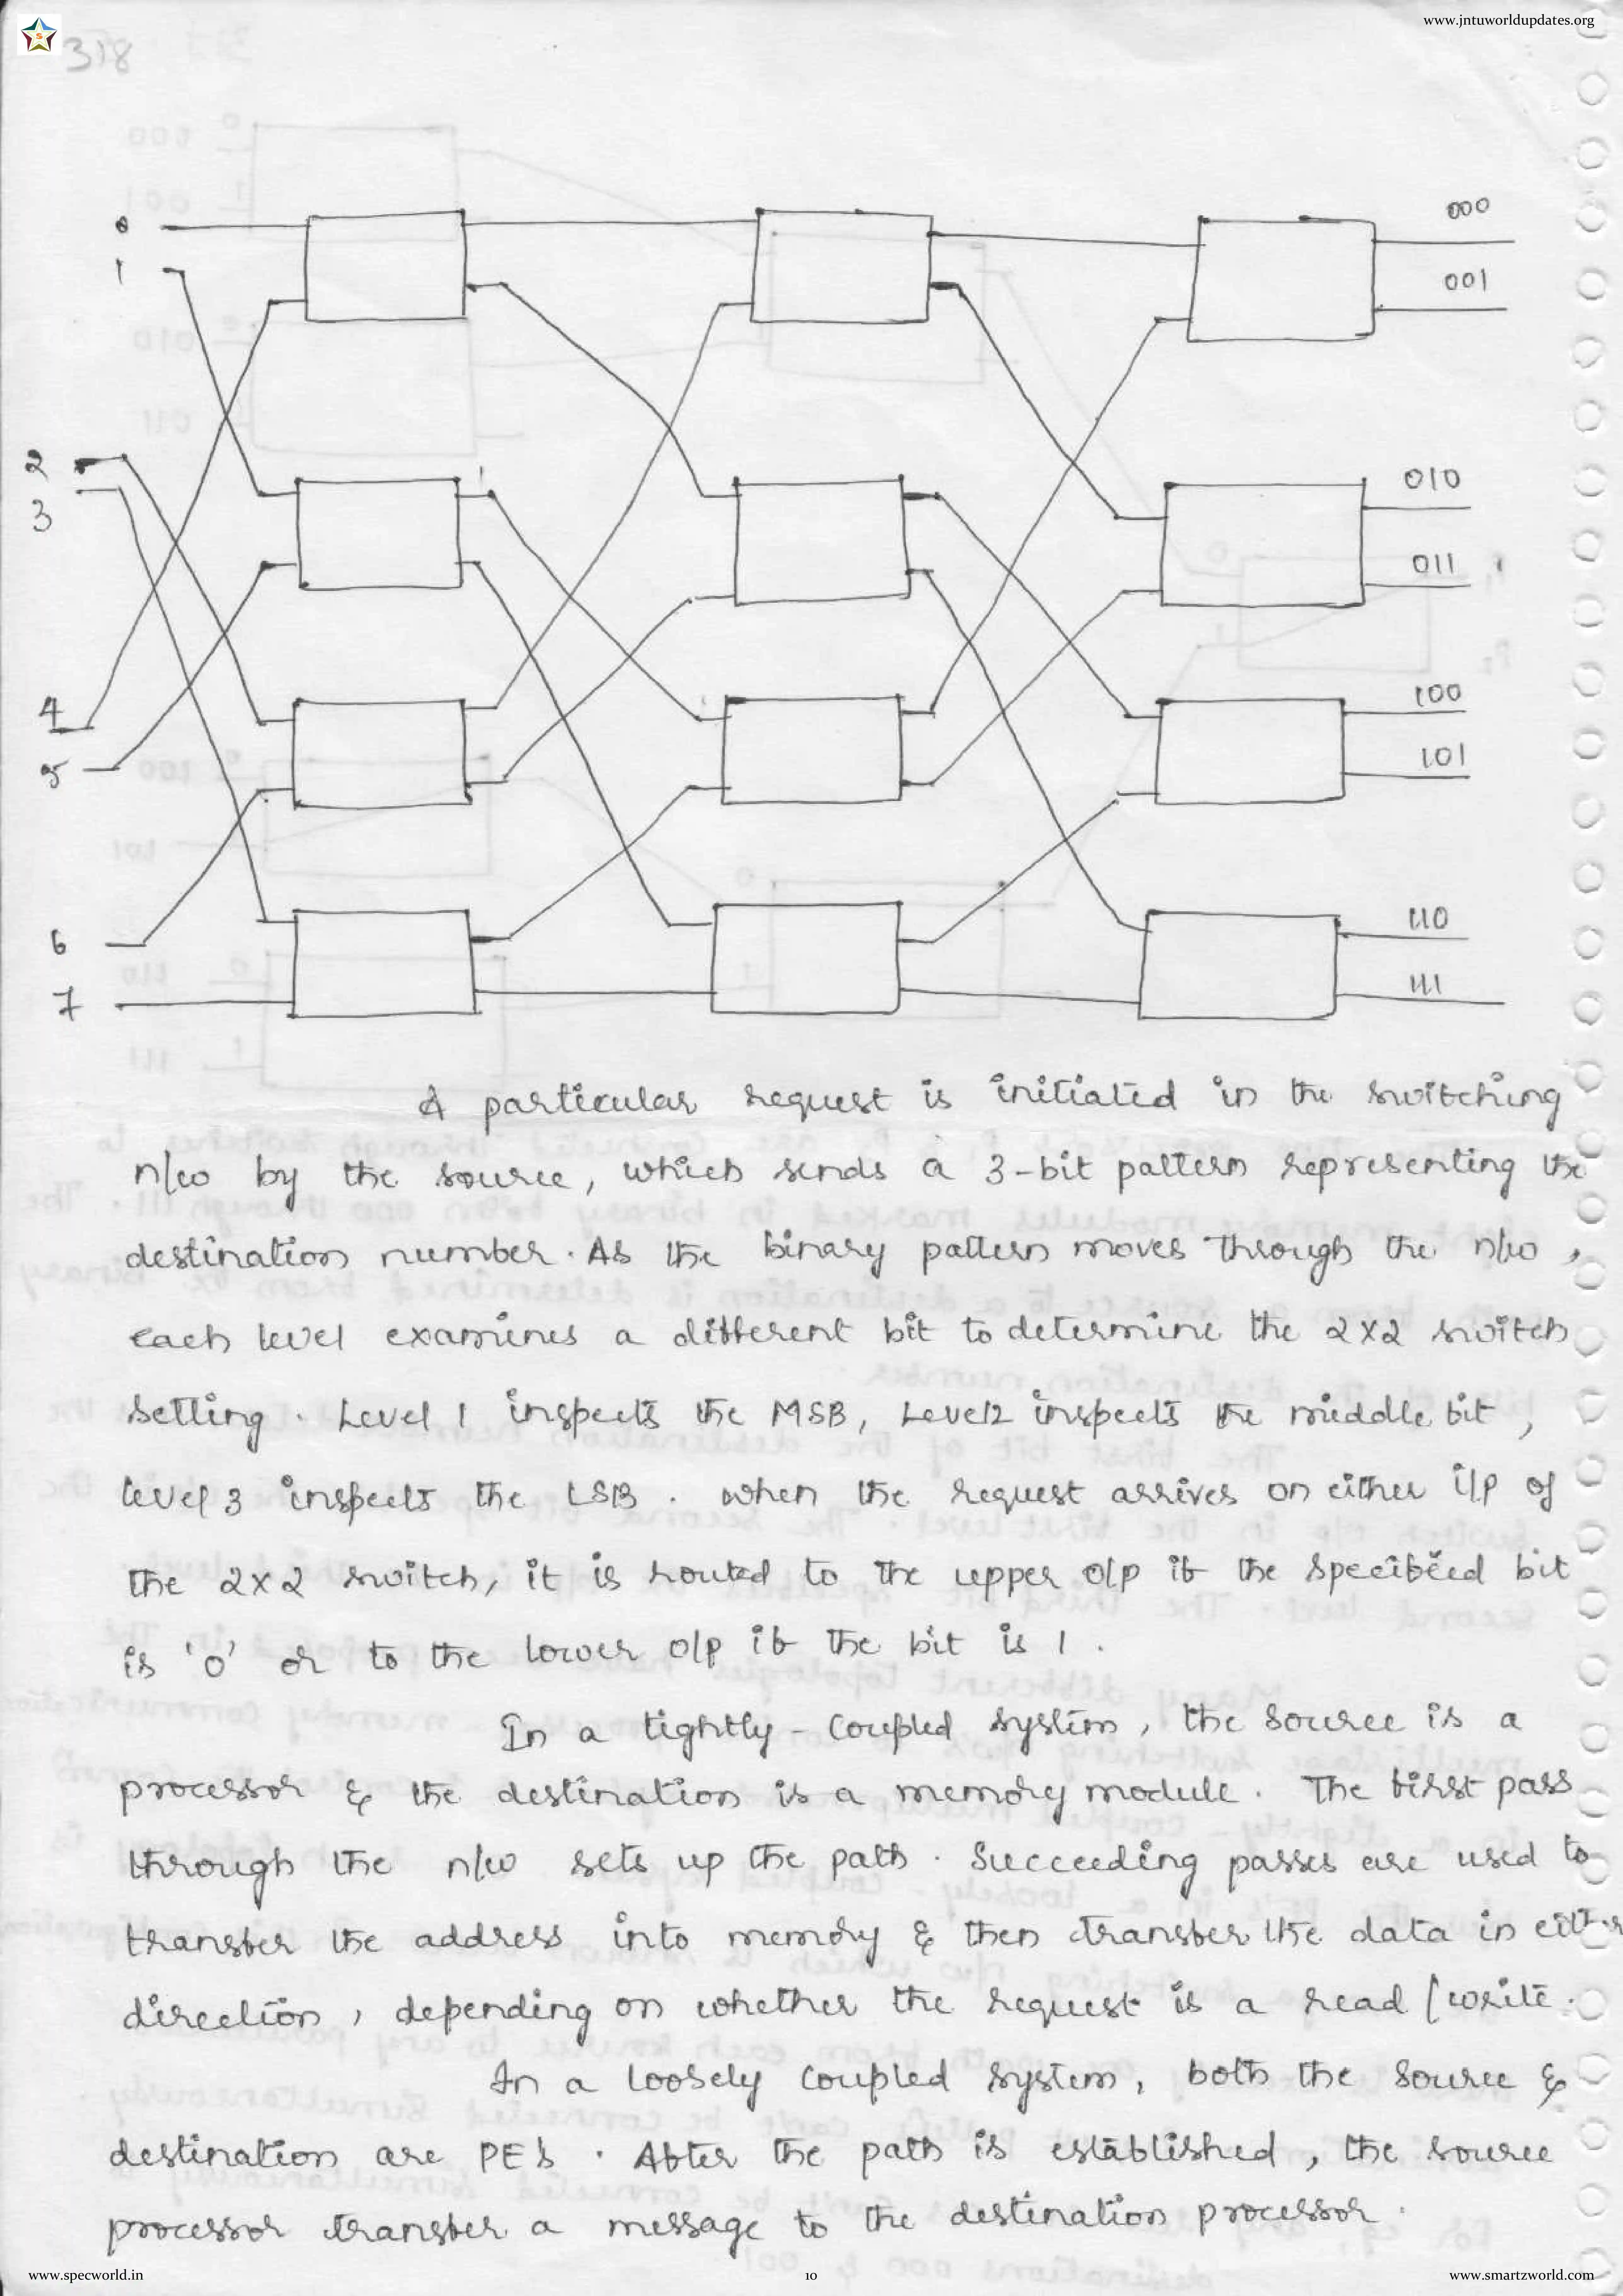 www.jntuworldupdates.org
318
0
000
1
001
2
010
3
011
4
100
5
101
6
110
7
111
A particular request is initiated in the switching
n/w by the source, which sends a 3-bit pattern representing the
destination number. As the binary pattern moves through the n/w,
each level examines a different bit to determine the 2x2 switch
setting. Level 1 inspects the MSB, Level2 inspects the middle bit,
level 3 inspects the LSB. when the request arrives on either i/p of
the 2x2 switch, it is routed to the upper o/p if the specified bit
is '0' or to the lower o/p if the bit is 1.
In a tightly-coupled system, the source is a
processor & the destination is a memory module. The first pass
through the n/w sets up the path. Succeeding passes are used to
transfer the address into memory & then transfer the data in either
direction, depending on whether the request is a read/write.
In a loosely coupled system, both the source &
destination are PE's. After the path is established, the source
processor transfer a message to the destination processor.
www.specworld.in
10
www.smartzworld.com